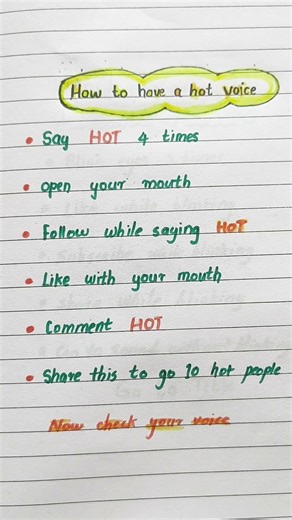 How to have a hot voice
• Say HOT 4 times
• open your mouth
• Follow while saying HoT
• Like with your mouth
• Comment HOT
• Share this to go 10 hot people
Now check your voice